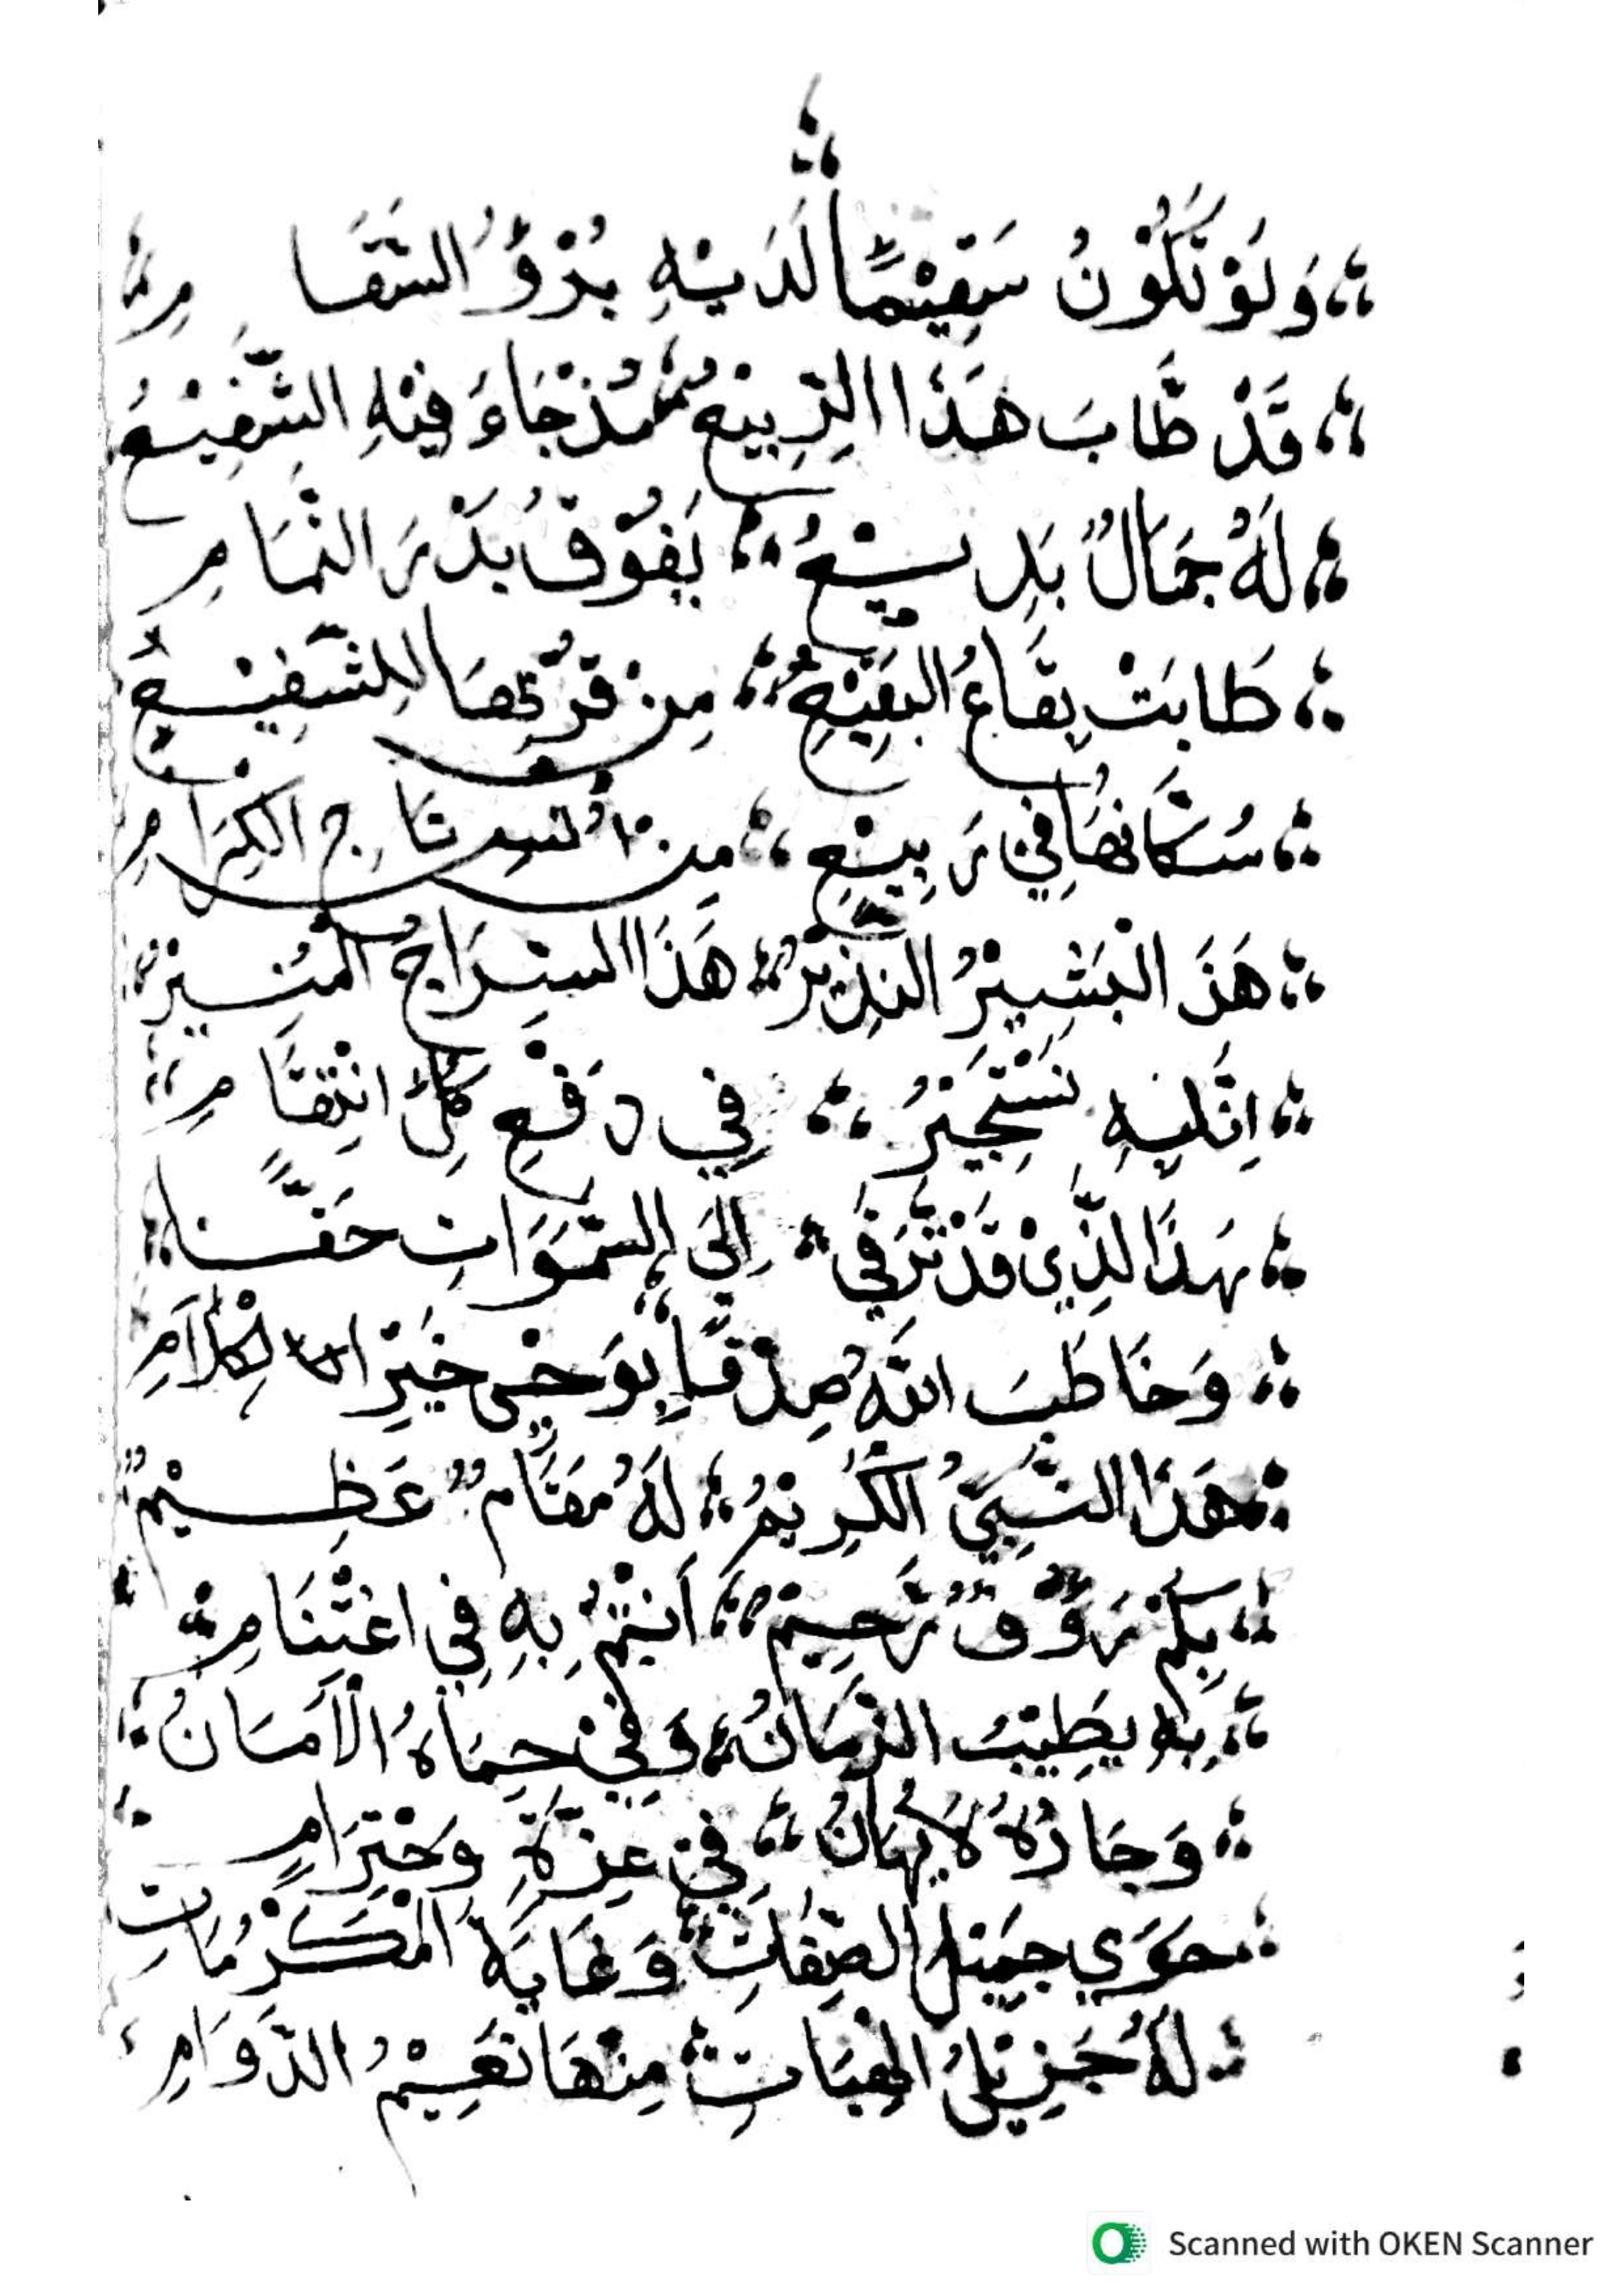 وَلَوْ تَكُوْنُ سَقِيْمًا لَدَيْهِ بُرْؤُ السَّقَامِ
قَدْ طَابَ هَذَا الرَّبِيْعُ مُذْ جَاءَ فِيْهِ الشَّفِيْعُ
لَهُ جَمَالٌ بَدِيْعُ يَفُوْقُ بَدْرَ التَّمَامِ
طَابَتْ بِقَاعُ الْبَقِيْعِ مِنْ قُرْبِهَا لِلشَّفِيْعِ
سُكَّانُهَا فِيْ رَبِيْعِ مِنْ تَاجِ الْكِرَامِ
هَذَ الْبَشِيْرُ النَّذِيْرُ هَذَا السِّرَاجُ الْمُنِيْرُ
اِنَّابِهِ نَسْتَجِيْرُ فِي دَفْعِ كُلِّ انْتِقَامِ
هَذَا لَّذِيْ قَدْ تَرَقَّى اِلَى السَّمَوَاتِ حَقًّا
وَخَاطَبَ اللّٰهُ صِدْقًا بِوَحْيِ خَيْرِ الْكَلَامِ
هَذَا النَّبِيُّ الْكَرِيْمُ لَهُ مَقَامٌ عَظِيْمٌ
بِكُمْ رَؤُفٌ رَّحِيْمٌ اَنْتُمْ بِهِ فِي اغْتِنَامِ
بِهِ يَطِيْبُ الزَّمَانُ وَفِيْ حِمَاهُ الْاَمَانُ
وَجَارُهُ لَايُهَانُ فِيْ عِزَّةٍ وَحْتِرَامِ
حَوَي جَمِيْلَ الصِّفَاتِ وَغَايَةَ الْمَكْرُمَاتِ
لَهُ جَزِيْلُ الْهِبَاتِ مِنْهَا نَعِيْمُ الدَّوَامِ
Scanned with OKEN Scanner